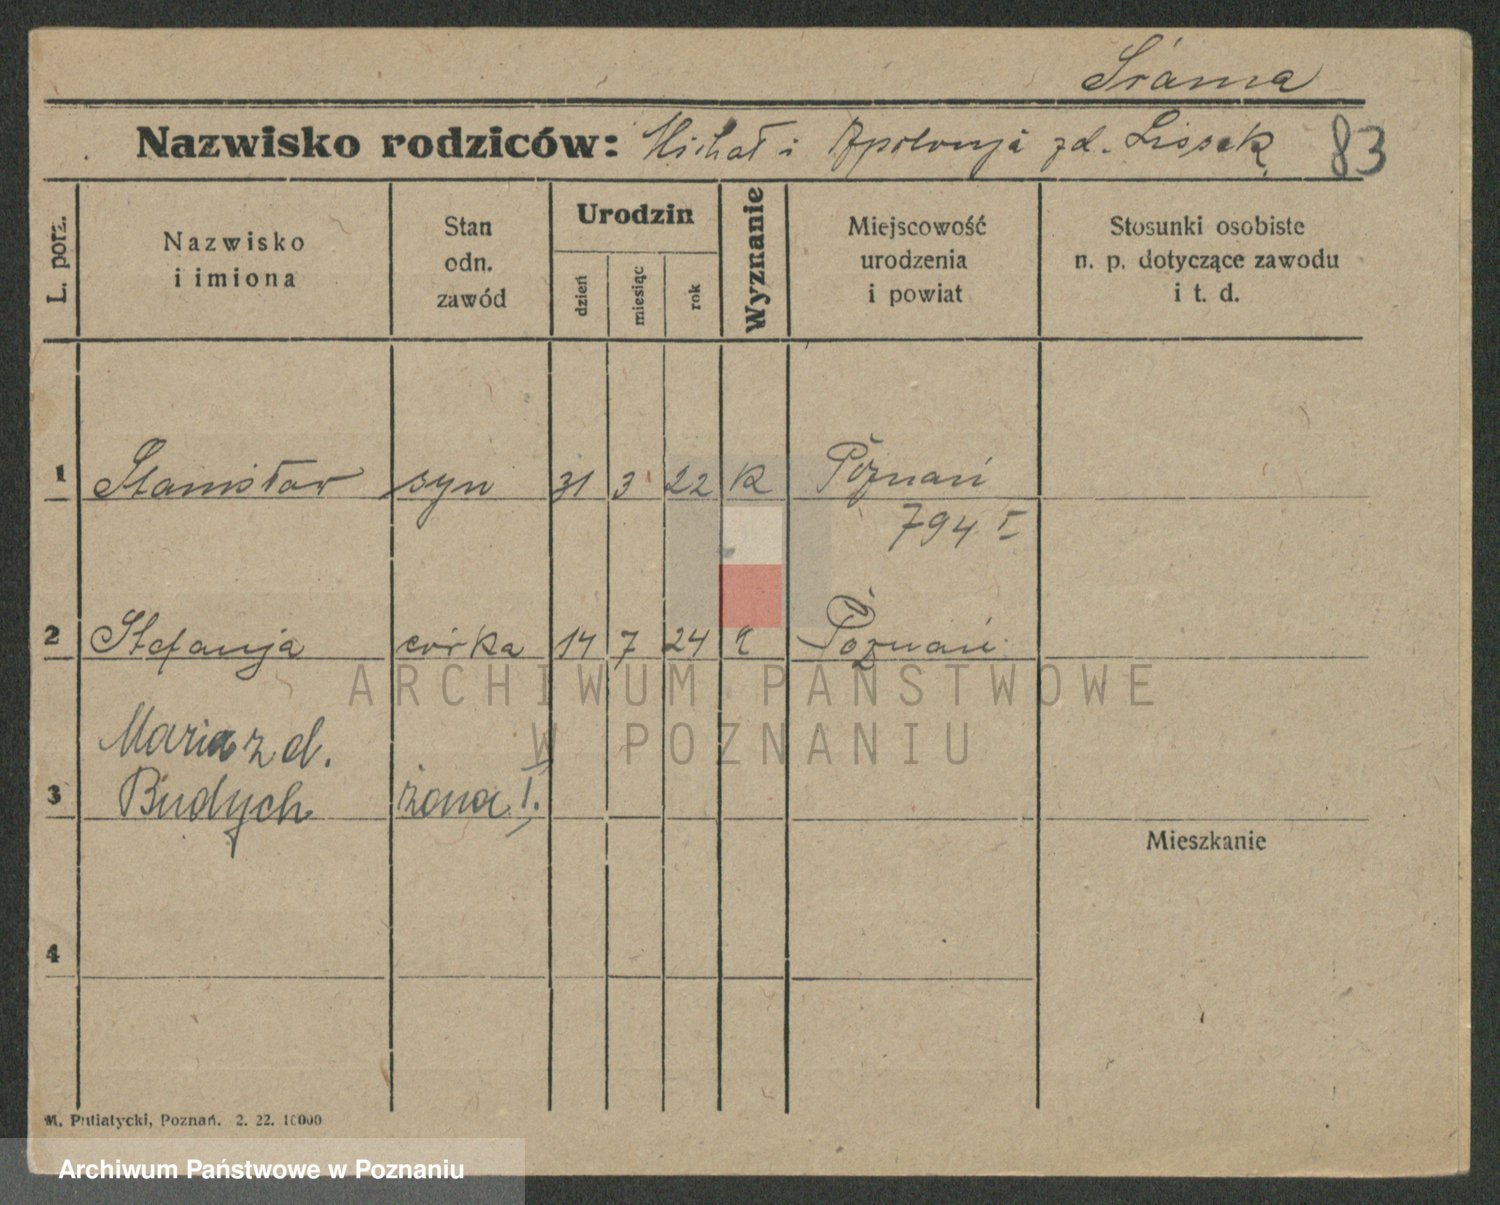 Śrama
Nazwisko rodziców: Michał i Apolonja zd. Lissek 83
L. porz.
Nazwisko
i imiona
Stan
odn.
zawód
Urodzin
dzień
miesiąc
rok
Wyznanie
Miejscowość
urodzenia
i powiat
Stosunki osobiste
n. p. dotyczące zawodu
i t. d.
1 Stanisław syn 31 3 22 k Poznań
794 I
2 Stefanja córka 14 7 24 k Poznań
Maria z d.
3 Budych żona I.
Mieszkanie
4
M. Putiatycki, Poznań. 2. 22. 10000
ARCHIWUM PAŃSTWOWE
W POZNANIU
Archiwum Państwowe w Poznaniu